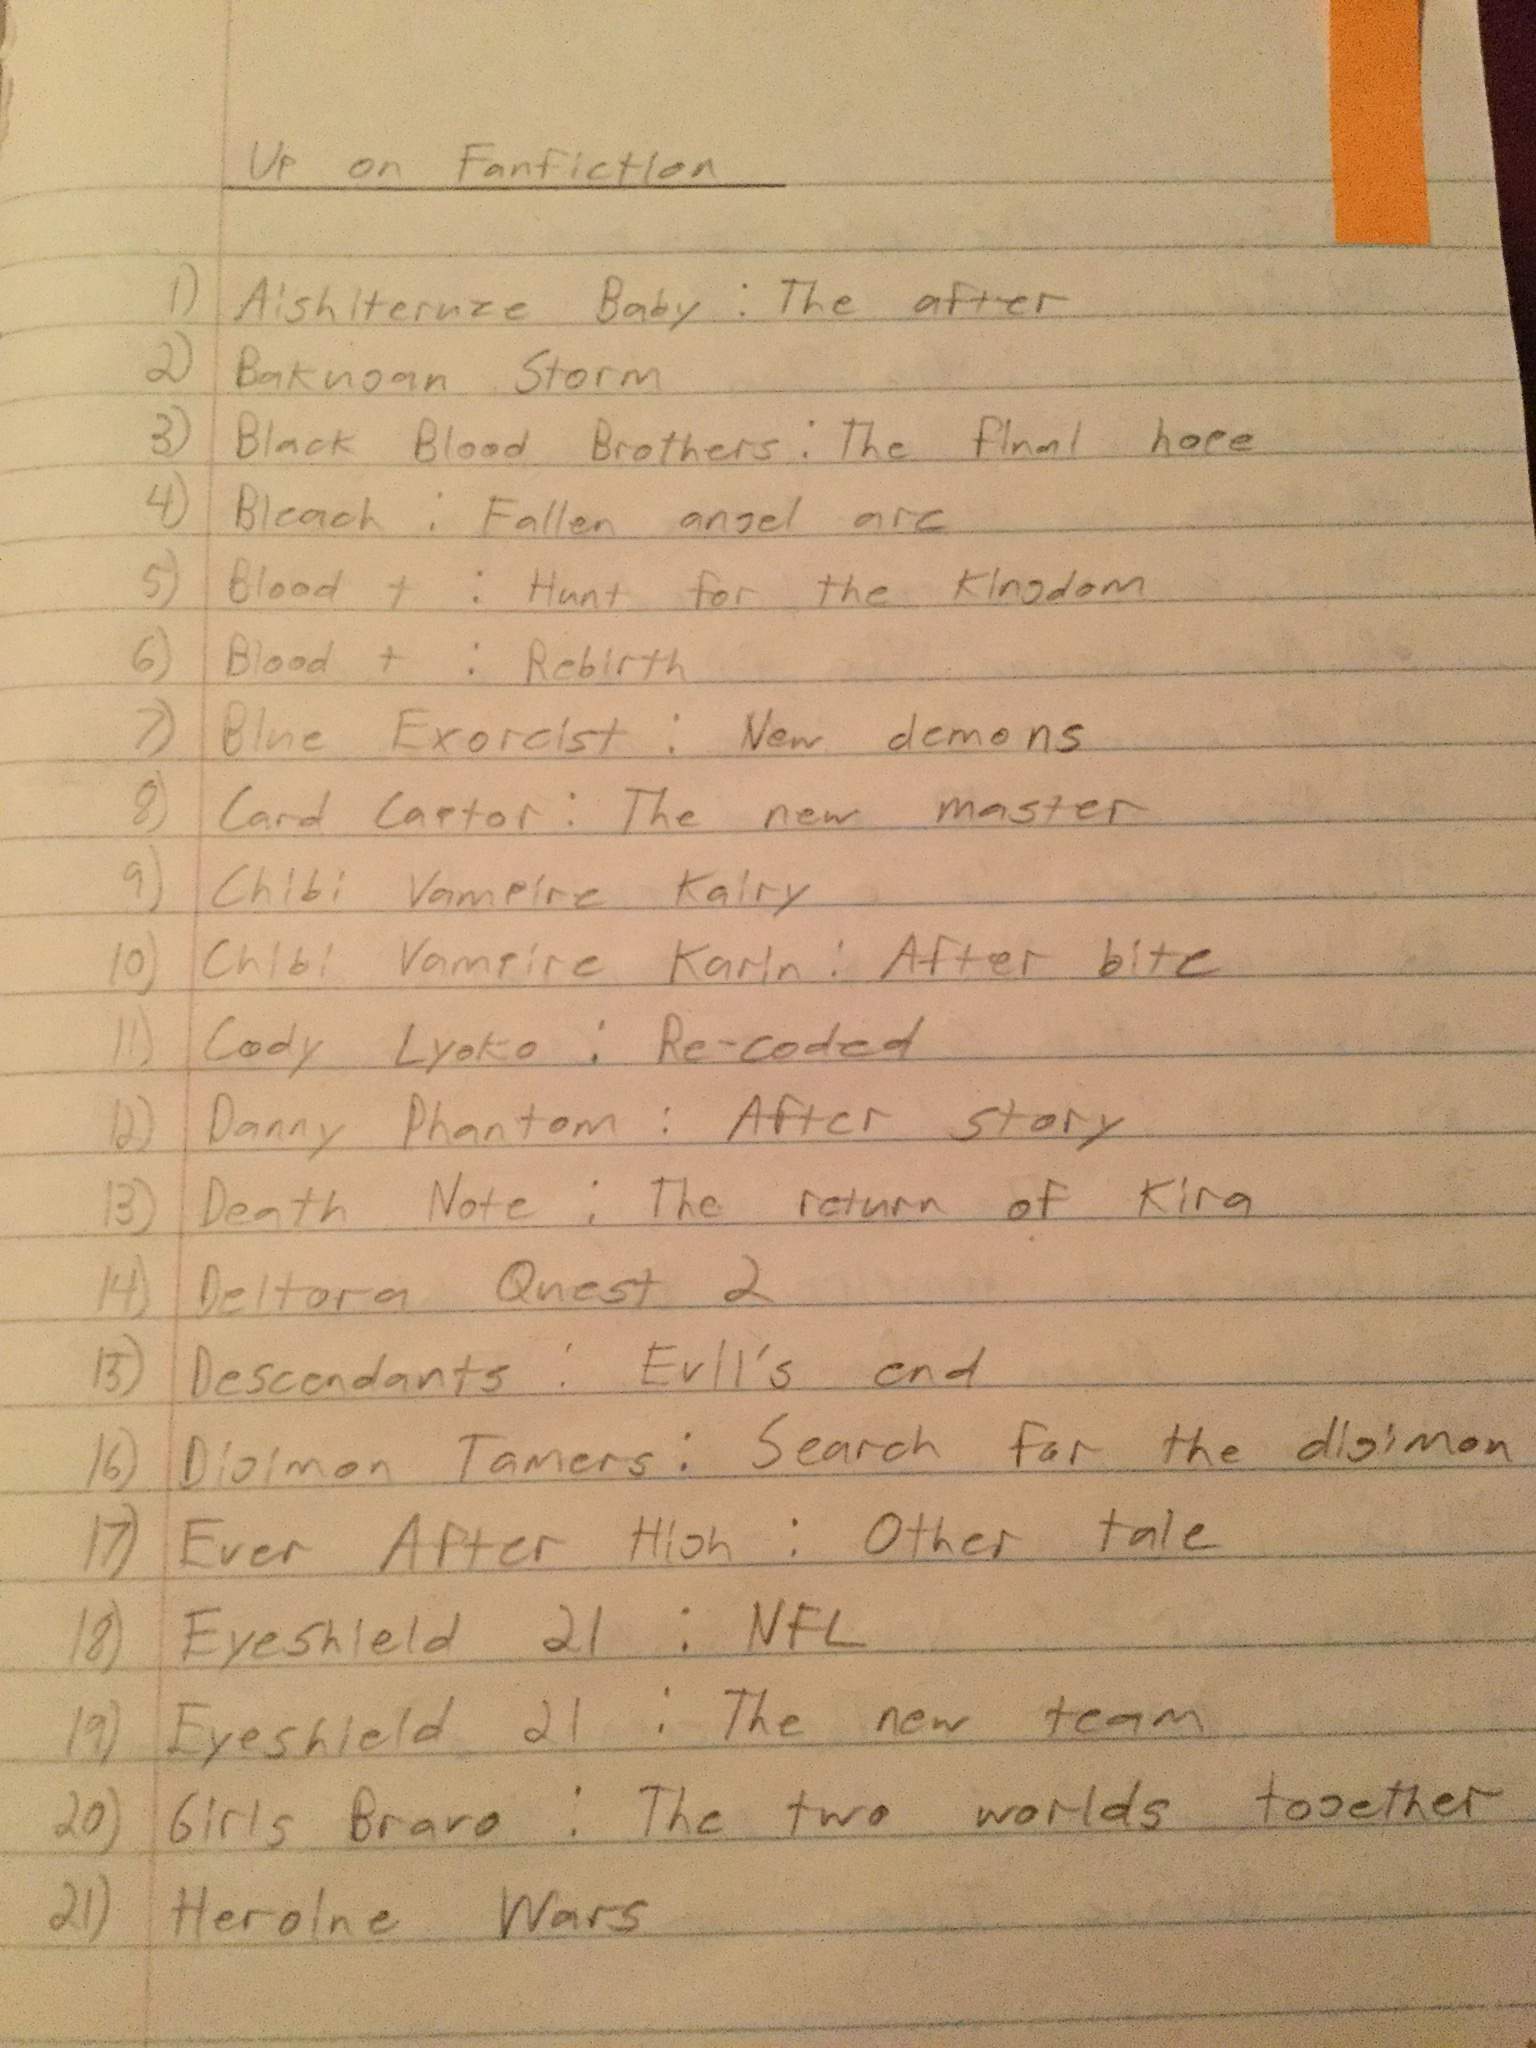 Up on Fanfiction
1) Aishiteruze Baby : The after
2) Bakugan Storm
3) Black Blood Brothers : The final hope
4) Bleach : Fallen angel arc
5) Blood + : Hunt for the Kingdom
6) Blood + : Rebirth
7) Blue Exorcist : New demons
8) Card Captor : The new master
9) Chibi Vampire Kairy
10) Chibi Vampire Karin : After bite
11) Cody Lyoko : Re-coded
12) Danny Phantom : After story
13) Death Note : The return of Kira
14) Deltora Quest 2
15) Descendants : Evil's end
16) Digimon Tamers : Search for the digimon
17) Ever After High : Other tale
18) Eyeshield 21 : NFL
19) Eyeshield 21 : The new team
20) Girls Bravo : The two worlds together
21) Heroine Wars